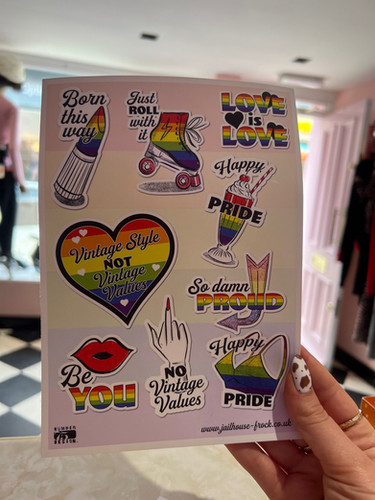 Born
this
way
Just
ROLL
with
it
LOVE
is
LOVE
Happy
PRIDE
Vintage Style
NOT
Vintage
Values
So damn
PROUD
Be
YOU
NO
Vintage
Values
Happy
PRIDE
www.jailhouse-frock.co.uk